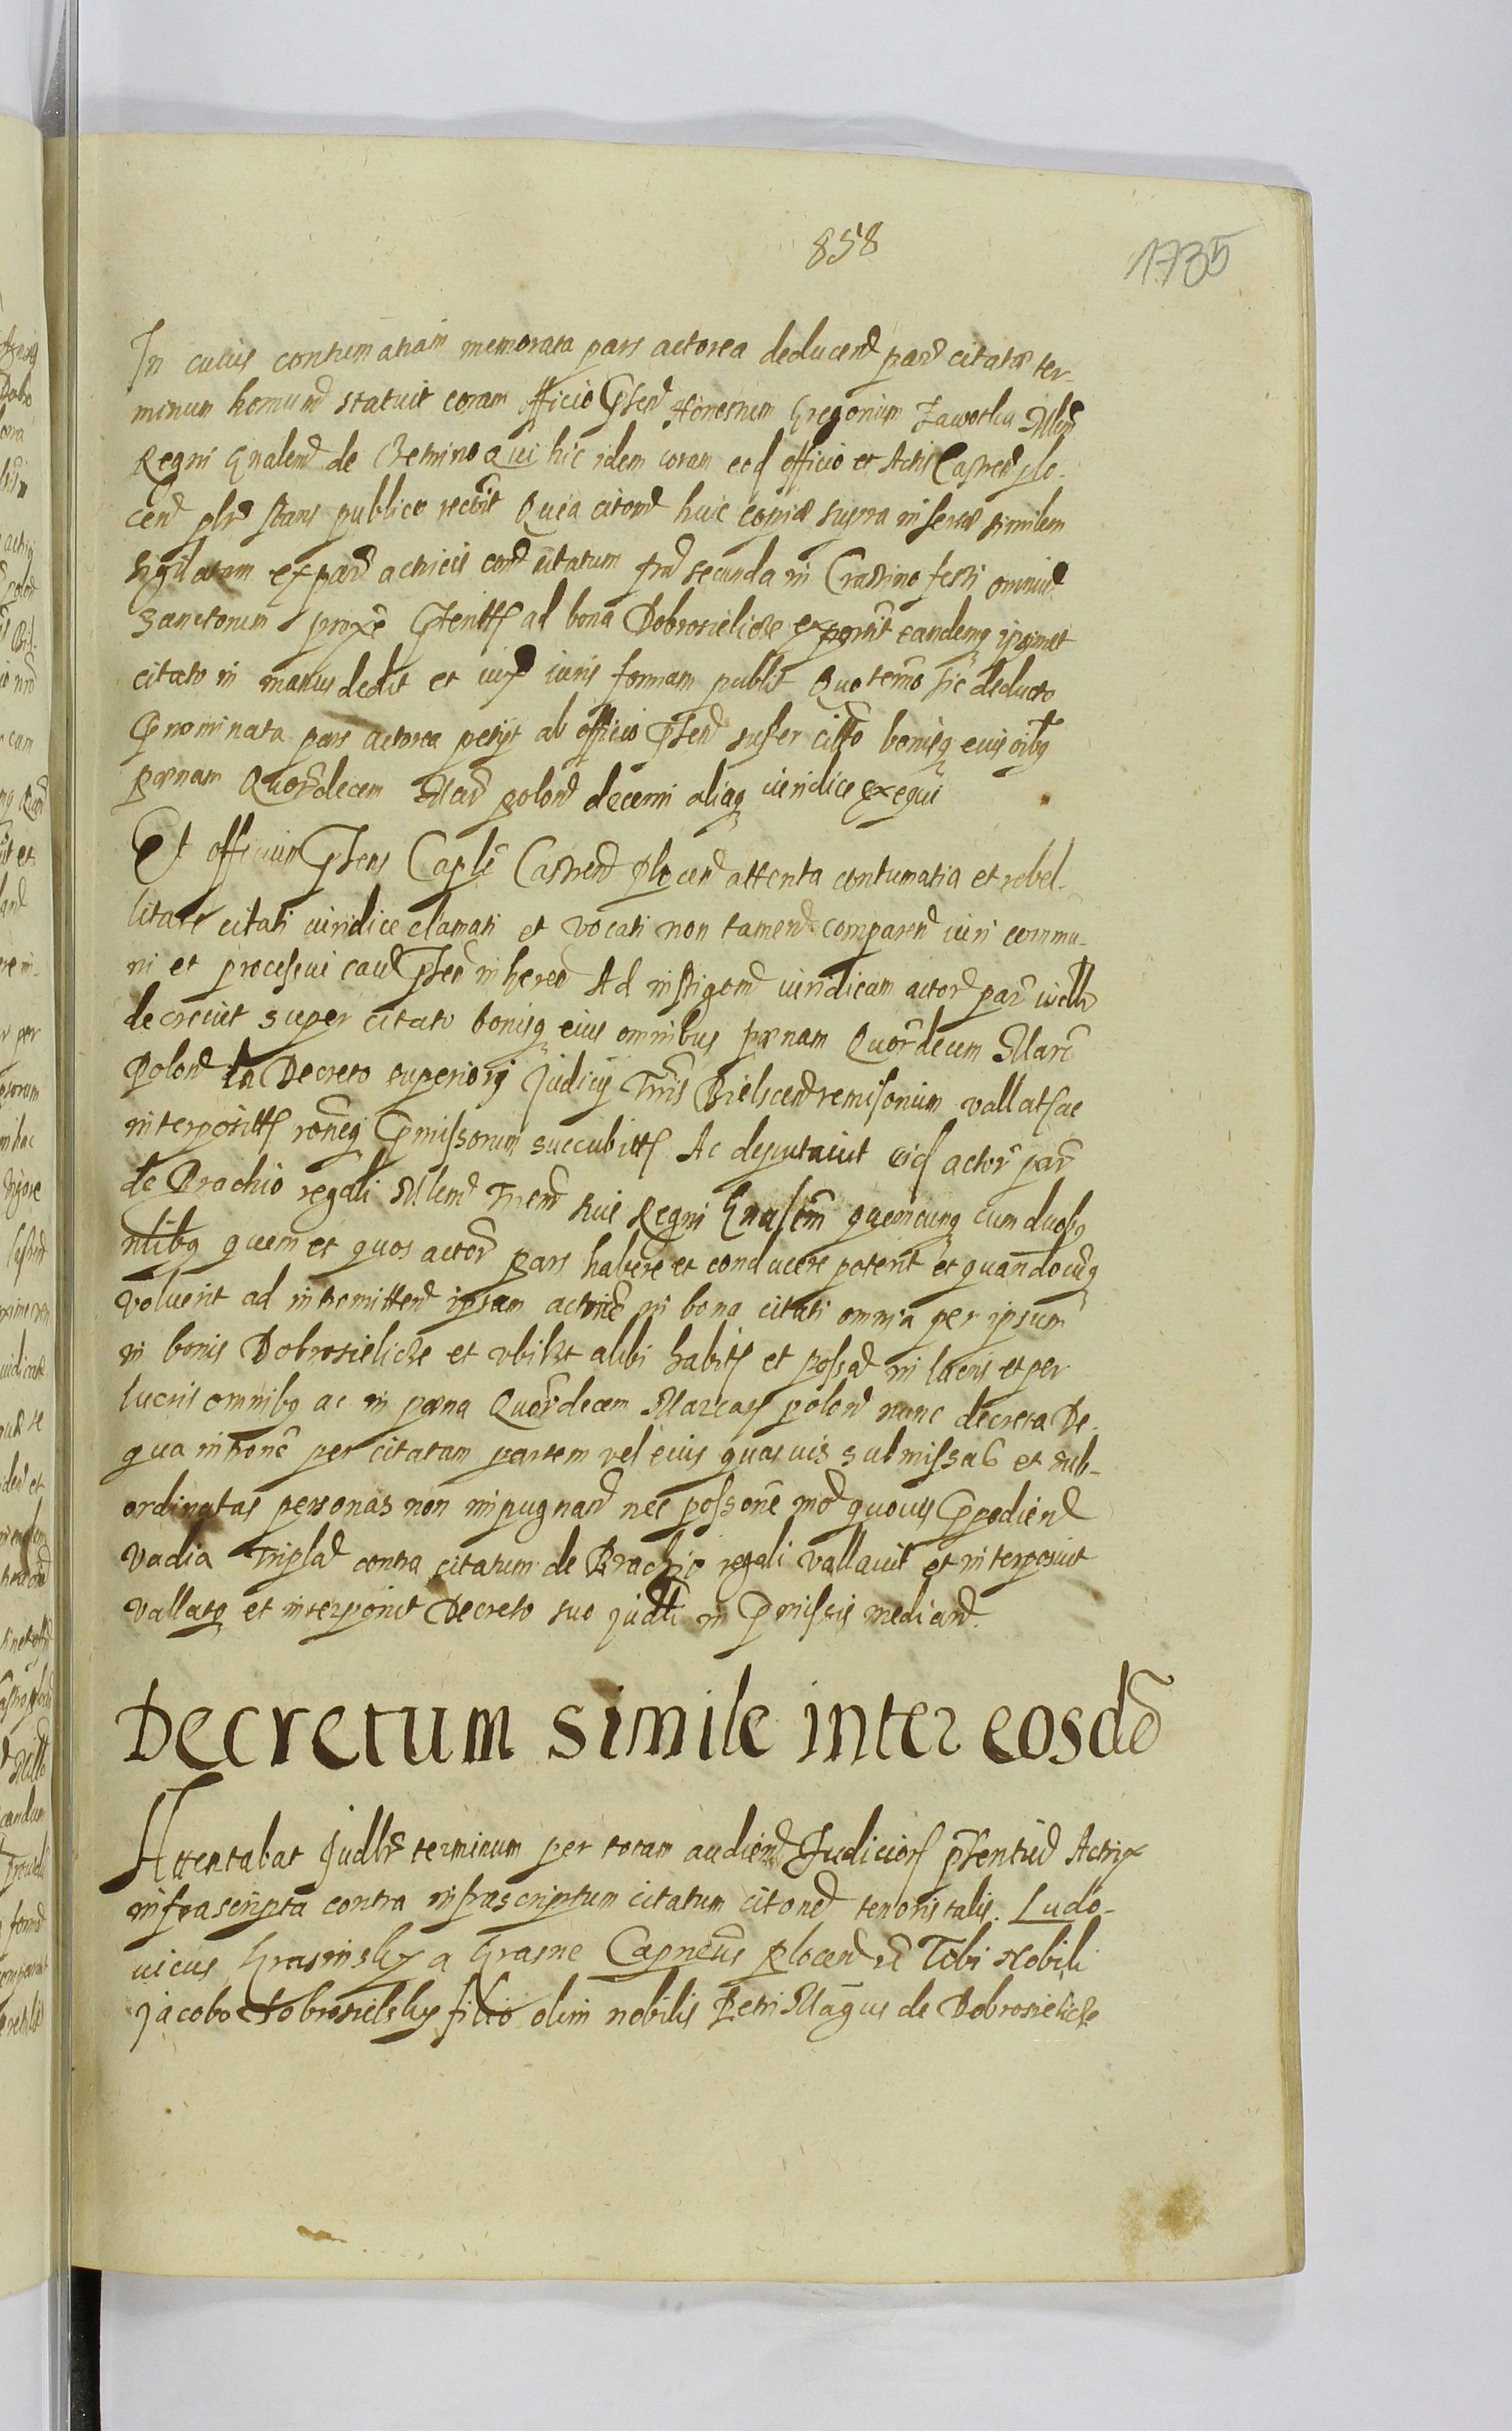 858
1735
In cuius contumatiam memorata pars actorea deducend part citatæ ter-
minum homund statuit coram officio Pnsen Honestum Gregorium Jaworka Mlem
Regni Gnalem de Chemino Qui hic idem coram eod officio et Actis Castren plo-
cen pnlr stans publice recuit Quia citaone huic copiæ supra insertæ similem
sigilatam ex part actricis cont citatum fra secunda in Crastino festi omnium
Sanctorum proxe Pterit ad bona Dobrosielicze exposuit eandemq ipsimet
citato in manus dedit et iuxt iuris formam publit Quo termo sic deducto
Pnominata pars actorea petyt ab officio Pnsen super citto bonisq eius oibq
pænam Quordecem Mar polon decerni aliaq iuridice exequi
Et officium Pnsens Caple Castren plocen attenta contumatia et rebel-
litate citati iuridice clamati et vocati non tamen comparen iuri commu-
ni et processui caus Pnsen inheren Ad instigaone iuridicam actor part iudlr
decreuit super citato bonisq eius omnibus pænam Quordecem Marc
Polon Decreto superiori Judicij Trris Bielscen remissorium vallatſ ac
interposittſ roneq Pmissorum succubittſ Ac deputauit eid actor part
de Brachio regali Mlem Trrem huis Regni Gnalem quemcunq cum duobq
nlibq quem et quos actor pars habere et conducere poterit et quandocuq
voluerit ad intromitten ipsam actrice in bona citati omnia per ipsum
in bonis Dobrosielicze et vbilbt alibi habitſ et possa in lucris et per
lucris omnibq ac in pæna Quordecem Marcarſ polon nunc decreta De
qua introne per citatam partem vel eius quasuis submissas et sub-
ordinatas personas non impugnand nec possone mod quouis Ppediend
vadia tripla contra citatum de Brachio regali vallauit et interposuit
vallatq et interponit Decreto suo judli in Pmissis median.
Decretum simile inter eosdē
Attentabat judlr terminum per totam audien Judiciorſ pnsentiu Actrix
infrascripta contra infrascriptum citatum citone tenoris talis. Ludo-
uicus Krasinsky a Krasne Capneus plocen Tibi Nobili
Jacobo Dobrosielsky filio olim nobilis Petri Magus de Dobrosielicze